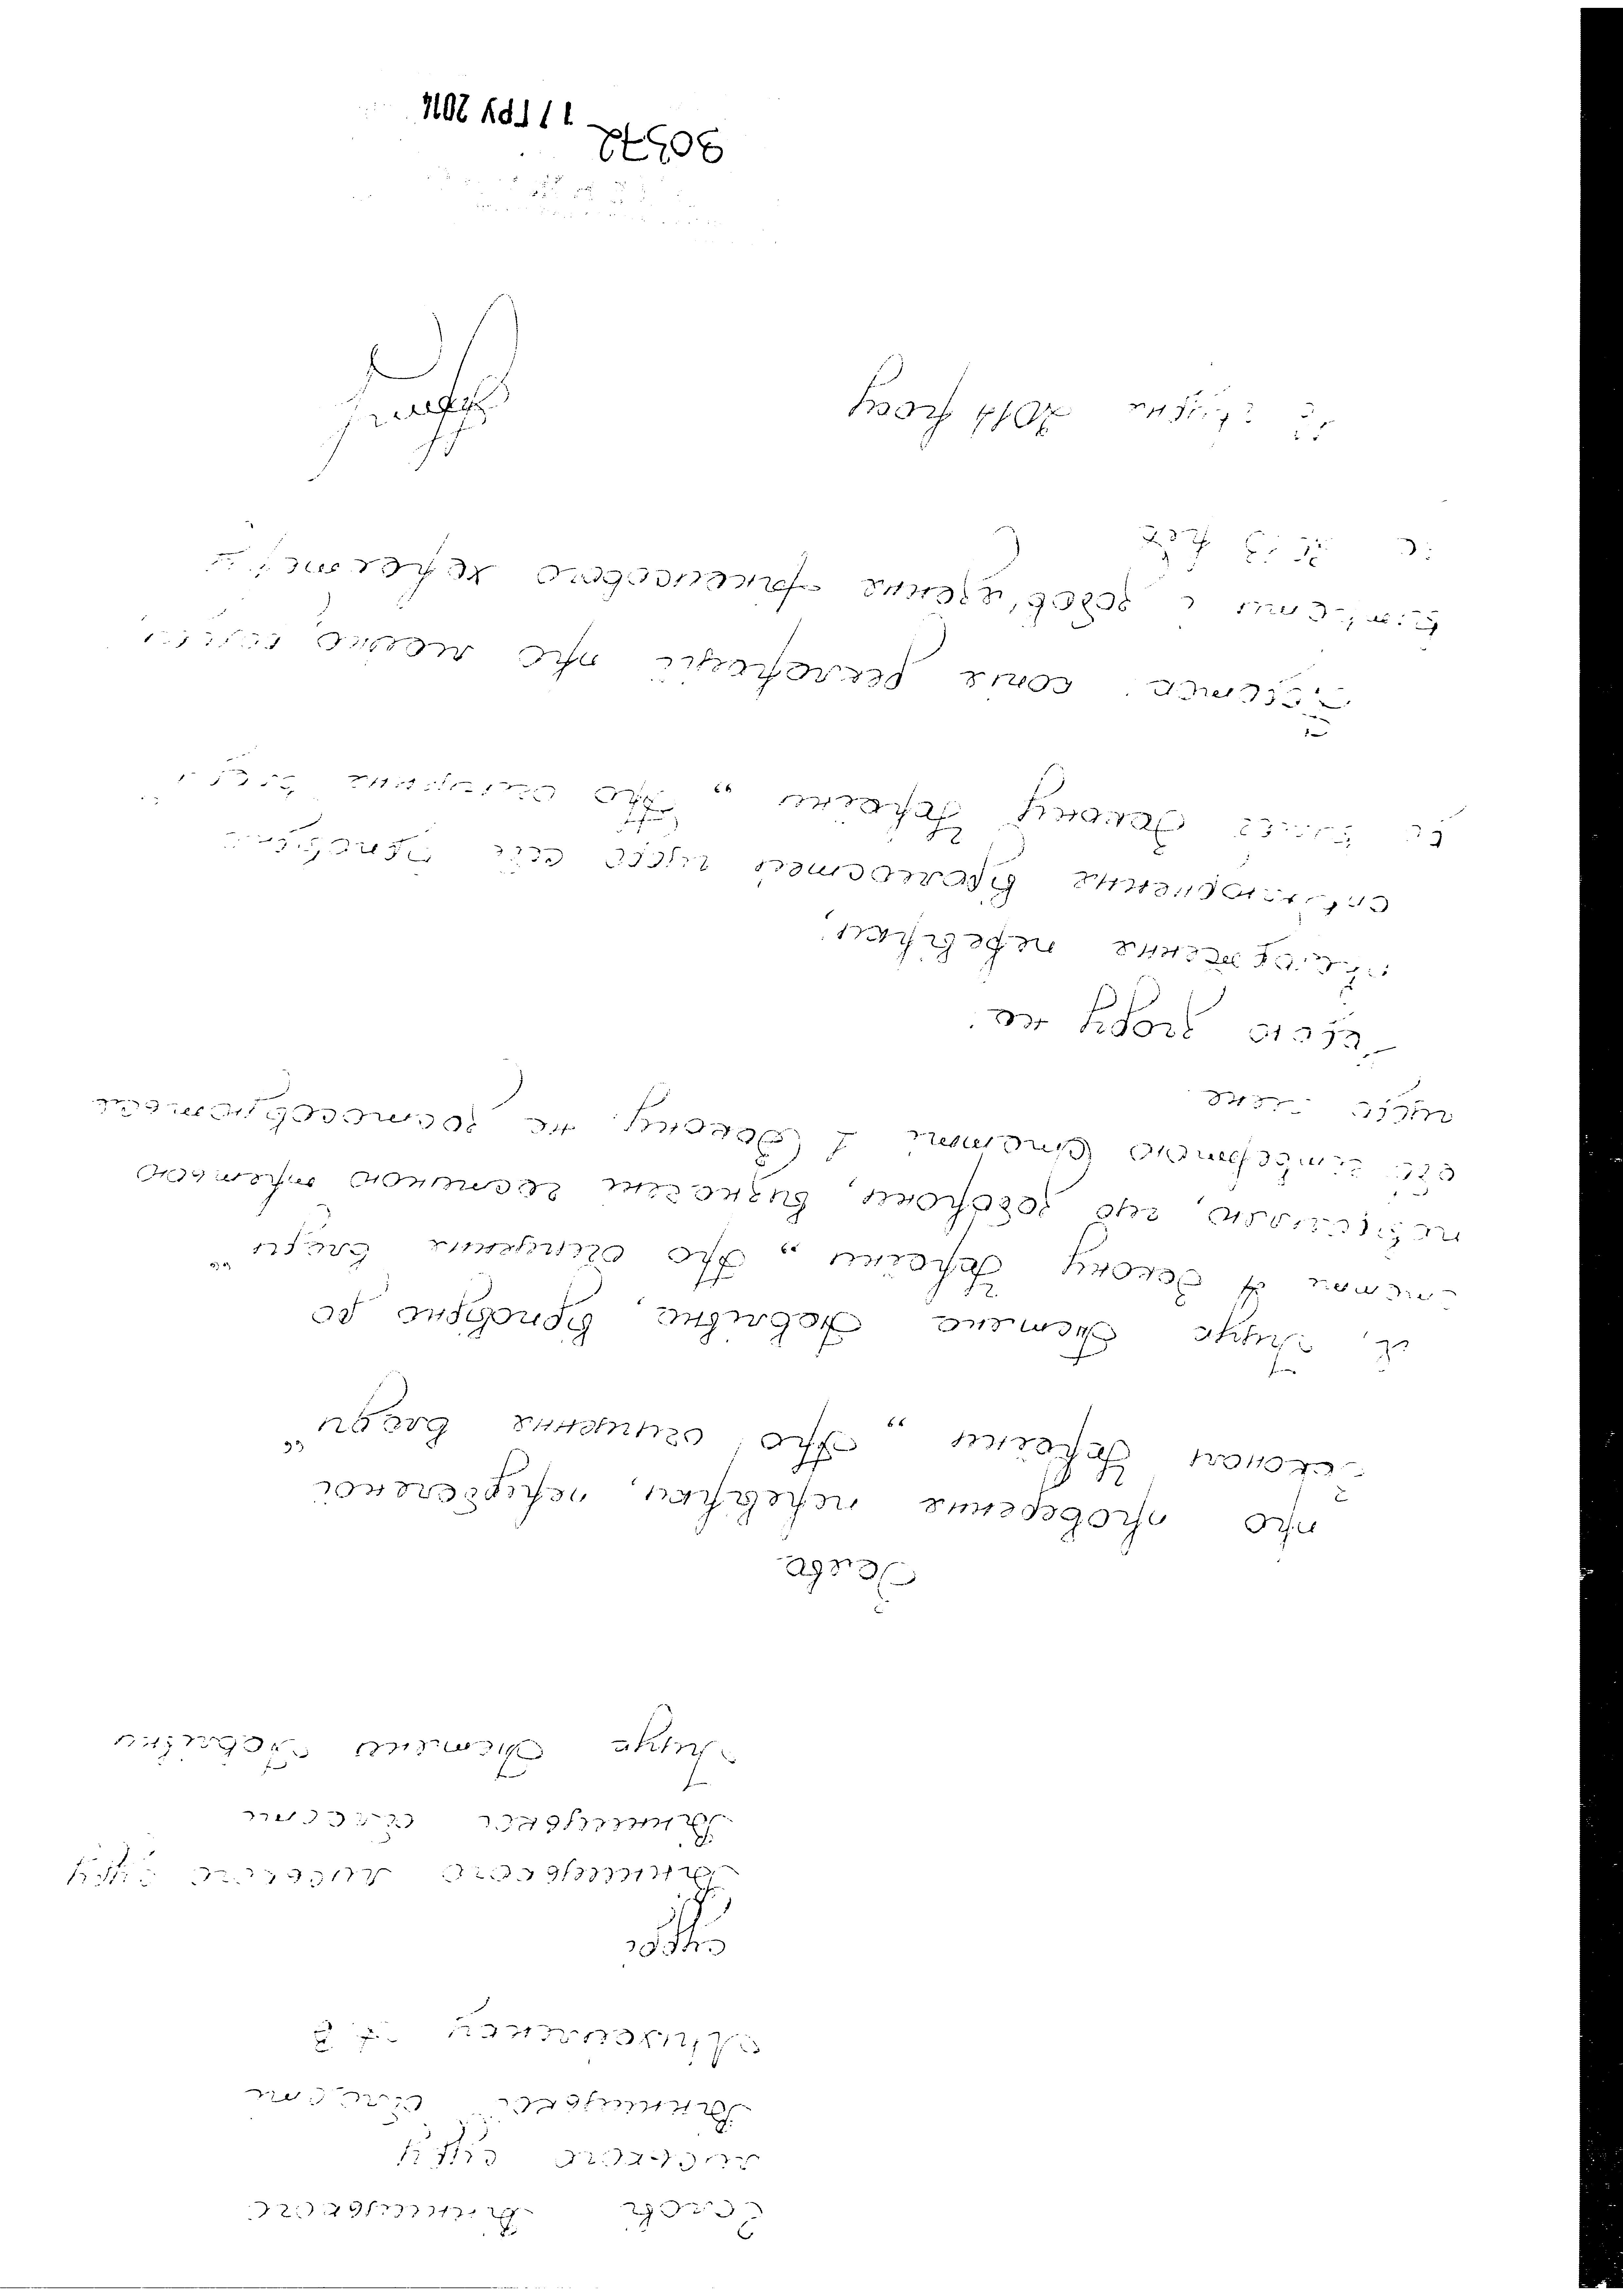 Голові Вінницького
міського суду
Вінницької області
Михайленку А.В.
судді
Вінницького міського суду
Вінницької області
Тетяни Павлівни
Заява
про проведення перевірки, передбаченої
Законом України „Про очищення влади“
Я, Тетяна Павлівна, відповідно до
статті 4 Закону України „Про очищення влади“
повідомляю, що заборони, визначені частиною третьою
або четвертою статті 1 Закону, не застосовуються
щодо мене.
Надаю згоду на:
проходження перевірки;
оприлюднення відомостей щодо себе відповідно
до вимог Закону України „Про очищення влади“.
Додаток: копія декларації про майно, доходи,
витрати і зобов'язання фінансового характеру
за 2013 рік
12 грудня 2014 року
30572
17 ГРУ 2014